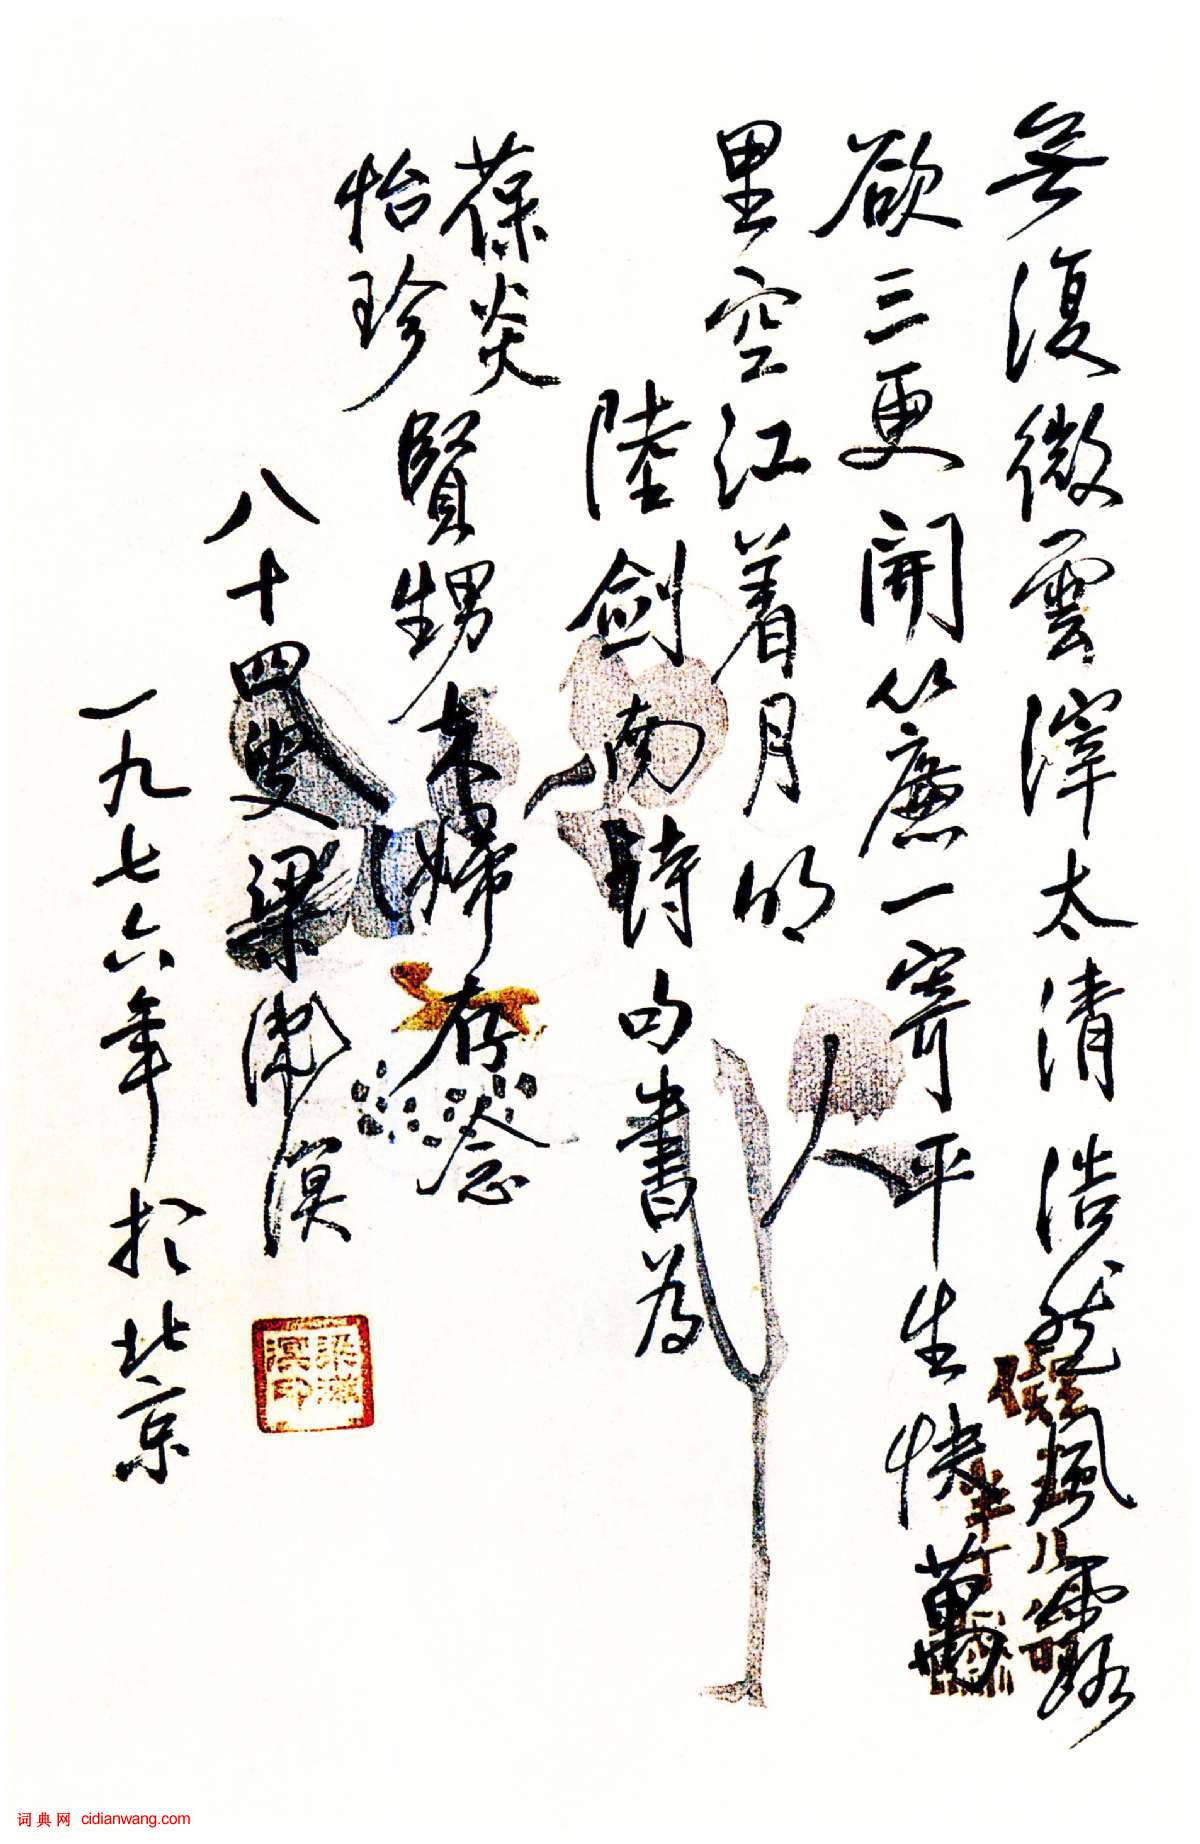 無復微雲滓太清浩然風露
欲三更開簾一寄平生快萬
里空江着月明
陸劍南詩句書為
葆炎
怡珍
賢甥夫婦存念
八十四叟梁漱溟
一九七六年於北京
梁漱溟印
词典网 cidianwang.com